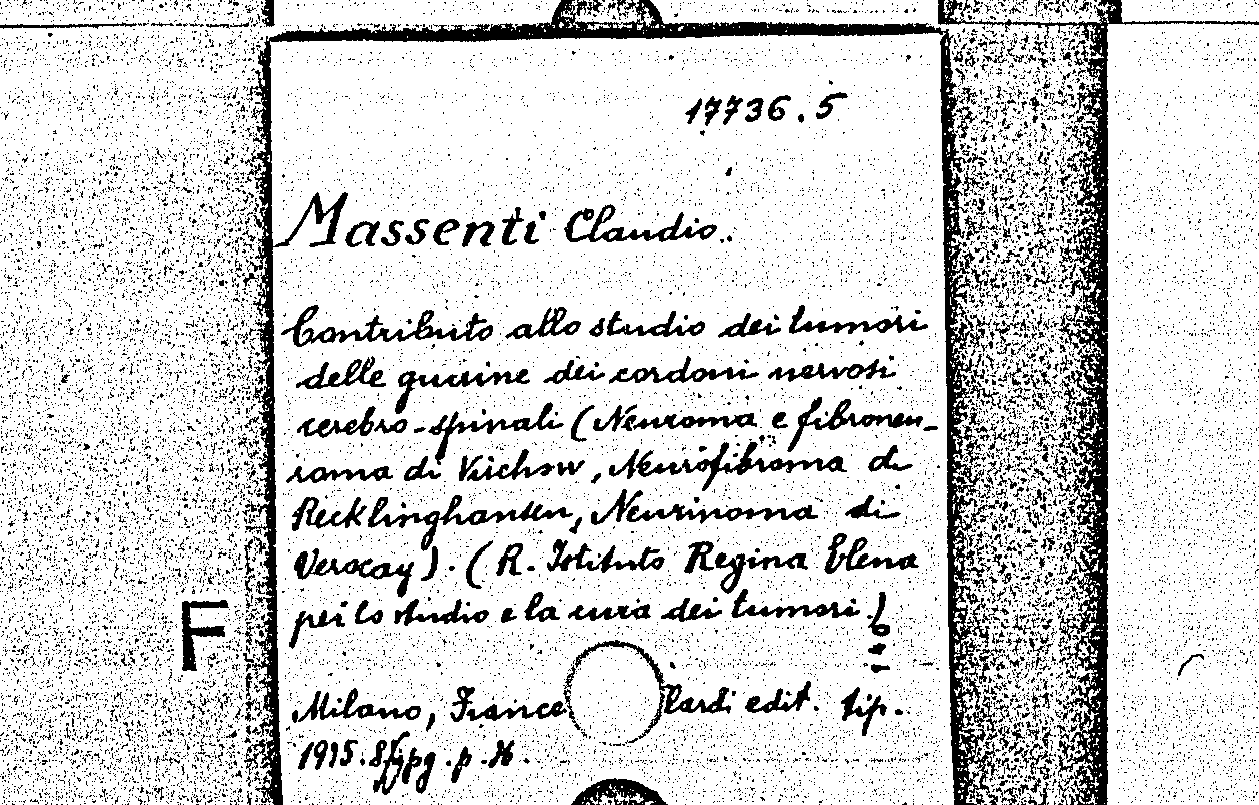 17736.5
Massenti Claudio.
Contributo allo studio dei tumori
delle guaine dei cordoni nervosi
cerebro-spinali (Neuroma e fibroneu-
roma di Virchow, Neurofibroma di
Recklinghansen, Neurinoma di
Verocay). (R. Istituto Regina Elena
per lo studio e la cura dei tumori.)
F
Milano, France lardi edit. tip.
1935. p.